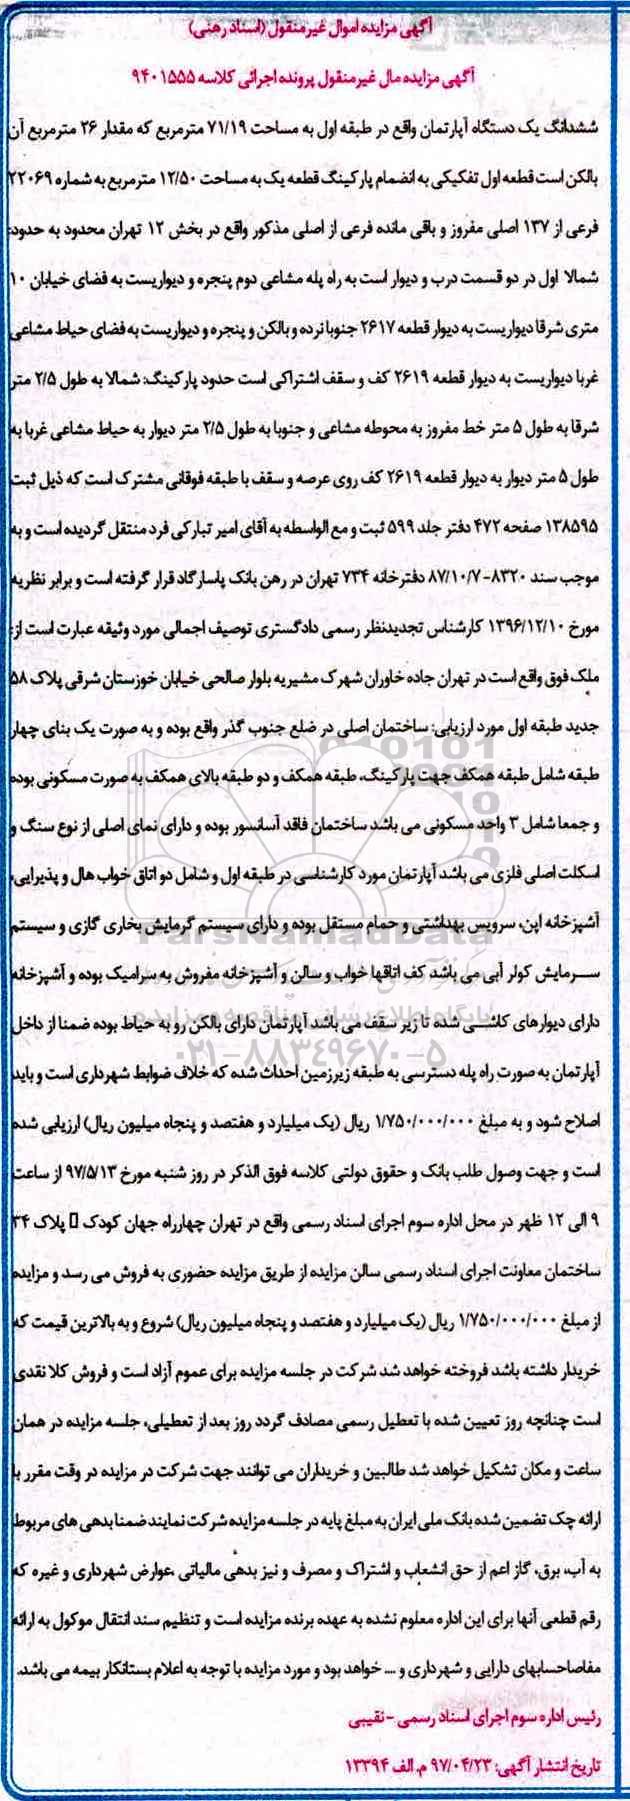 آگهی مزایده اموال غیرمنقول (اسناد رهنی)
آگهی مزایده مال غیرمنقول پرونده اجرائی کلاسه ۹۴۰۱۵۵۵
ششدانگ یک دستگاه آپارتمان واقع در طبقه اول به مساحت ۷۱/۱۹ مترمربع که مقدار ۲۶ مترمربع آن
بالکن است قطعه اول تفکیکی به انضمام پارکینگ قطعه یک به مساحت ۱۲/۵۰ مترمربع به شماره ۲۲۰۶۹
فرعی از ۱۳۷ اصلی مفروز و باقی مانده فرعی از اصلی مذکور واقع در بخش ۱۲ تهران محدود به حدود:
شمالا اول در دو قسمت درب و دیوار است به راه پله مشاعی دوم پنجره و دیواریست به فضای خیابان ۱۰
متری شرقا دیواریست به دیوار قطعه ۲۶۱۷ جنوبا نرده و بالکن و پنجره و دیواریست به فضای حیاط مشاعی
غربا دیواریست به دیوار قطعه ۲۶۱۹ کف و سقف اشتراکی است حدود پارکینگ: شمالا به طول ۲/۵ متر
شرقا به طول ۵ متر خط مفروز به محوطه مشاعی و جنوبا به طول ۲/۵ متر دیوار به حیاط مشاعی غربا به
طول ۵ متر دیوار به دیوار قطعه ۲۶۱۹ کف روی عرصه و سقف با طبقه فوقانی مشترک است که ذیل ثبت
۱۳۸۵۹۵ صفحه ۴۷۲ دفتر جلد ۵۹۹ ثبت و مع الواسطه به آقای امیر تبارکی فرد منتقل گردیده است و به
موجب سند ۸۳۲۰-۸۷/۱۰/۷ دفترخانه ۷۳۴ تهران در رهن بانک پاسارگاد قرار گرفته است و برابر نظریه
مورخ ۱۳۹۶/۱۲/۱۰ کارشناس تجدیدنظر رسمی دادگستری توصیف اجمالی مورد وثیقه عبارت است از:
ملک فوق واقع است در تهران جاده خاوران شهرک مشیریه بلوار صالحی خیابان خوزستان شرقی پلاک ۵۸
جدید طبقه اول مورد ارزیابی: ساختمان اصلی در ضلع جنوب گذر واقع بوده و به صورت یک بنای چهار
طبقه شامل طبقه همکف جهت پارکینگ، طبقه همکف و دو طبقه بالای همکف به صورت مسکونی بوده
و جمعا شامل ۳ واحد مسکونی می باشد ساختمان فاقد آسانسور بوده و دارای نمای اصلی از نوع سنگ و
اسکلت اصلی فلزی می باشد آپارتمان مورد کارشناسی در طبقه اول و شامل دو اتاق خواب هال و پذیرایی،
آشپزخانه اپن، سرویس بهداشتی و حمام مستقل بوده و دارای سیستم گرمایش بخاری گازی و سیستم
سرمایش کولر آبی می باشد کف اتاقها خواب و سالن و آشپزخانه مفروش به سرامیک بوده و آشپزخانه
دارای دیوارهای کاشی شده تا زیر سقف می باشد آپارتمان دارای بالکن رو به حیاط بوده ضمنا از داخل
آپارتمان به صورت راه پله دسترسی به طبقه زیرزمین احداث شده که خلاف ضوابط شهرداری است و باید
اصلاح شود و به مبلغ ۱/۷۵۰/۰۰۰/۰۰۰ ریال (یک میلیارد و هفتصد و پنجاه میلیون ریال) ارزیابی شده
است و جهت وصول طلب بانک و حقوق دولتی کلاسه فوق الذکر در روز شنبه مورخ ۹۷/۵/۱۳ از ساعت
۹ الی ۱۲ ظهر در محل اداره سوم اجرای اسناد رسمی واقع در تهران چهارراه جهان کودک پلاک ۳۴
ساختمان معاونت اجرای اسناد رسمی سالن مزایده از طریق مزایده حضوری به فروش می رسد و مزایده
از مبلغ ۱/۷۵۰/۰۰۰/۰۰۰ ریال (یک میلیارد و هفتصد و پنجاه میلیون ریال) شروع و به بالاترین قیمت که
خریدار داشته باشد فروخته خواهد شد شرکت در جلسه مزایده برای عموم آزاد است و فروش کلا نقدی
است چنانچه روز تعیین شده با تعطیل رسمی مصادف گردد روز بعد از تعطیلی، جلسه مزایده در همان
ساعت و مکان تشکیل خواهد شد طالبین و خریداران می توانند جهت شرکت در مزایده در وقت مقرر با
ارائه چک تضمین شده بانک ملی ایران به مبلغ پایه در جلسه مزایده شرکت نمایند ضمنا بدهی های مربوط
به آب، برق، گاز اعم از حق انشعاب و اشتراک و مصرف و نیز بدهی مالیاتی ،عوارض شهرداری و غیره که
رقم قطعی آنها برای این اداره معلوم نشده به عهده برنده مزایده است و تنظیم سند انتقال موکول به ارائه
مفاصاحسابهای دارایی و شهرداری و .... خواهد بود و مورد مزایده با توجه به اعلام بستانکار بیمه می باشد.
رئیس اداره سوم اجرای اسناد رسمی - نقیبی
تاریخ انتشار آگهی: ۹۷/۰۴/۲۳ م.الف ۱۳۳۹۴
ParsNamadData
پایگاه اطلاع رسانی مناقصه و مزایده
۰۲۱-۸۸۳۴۹۶۷۰-۵